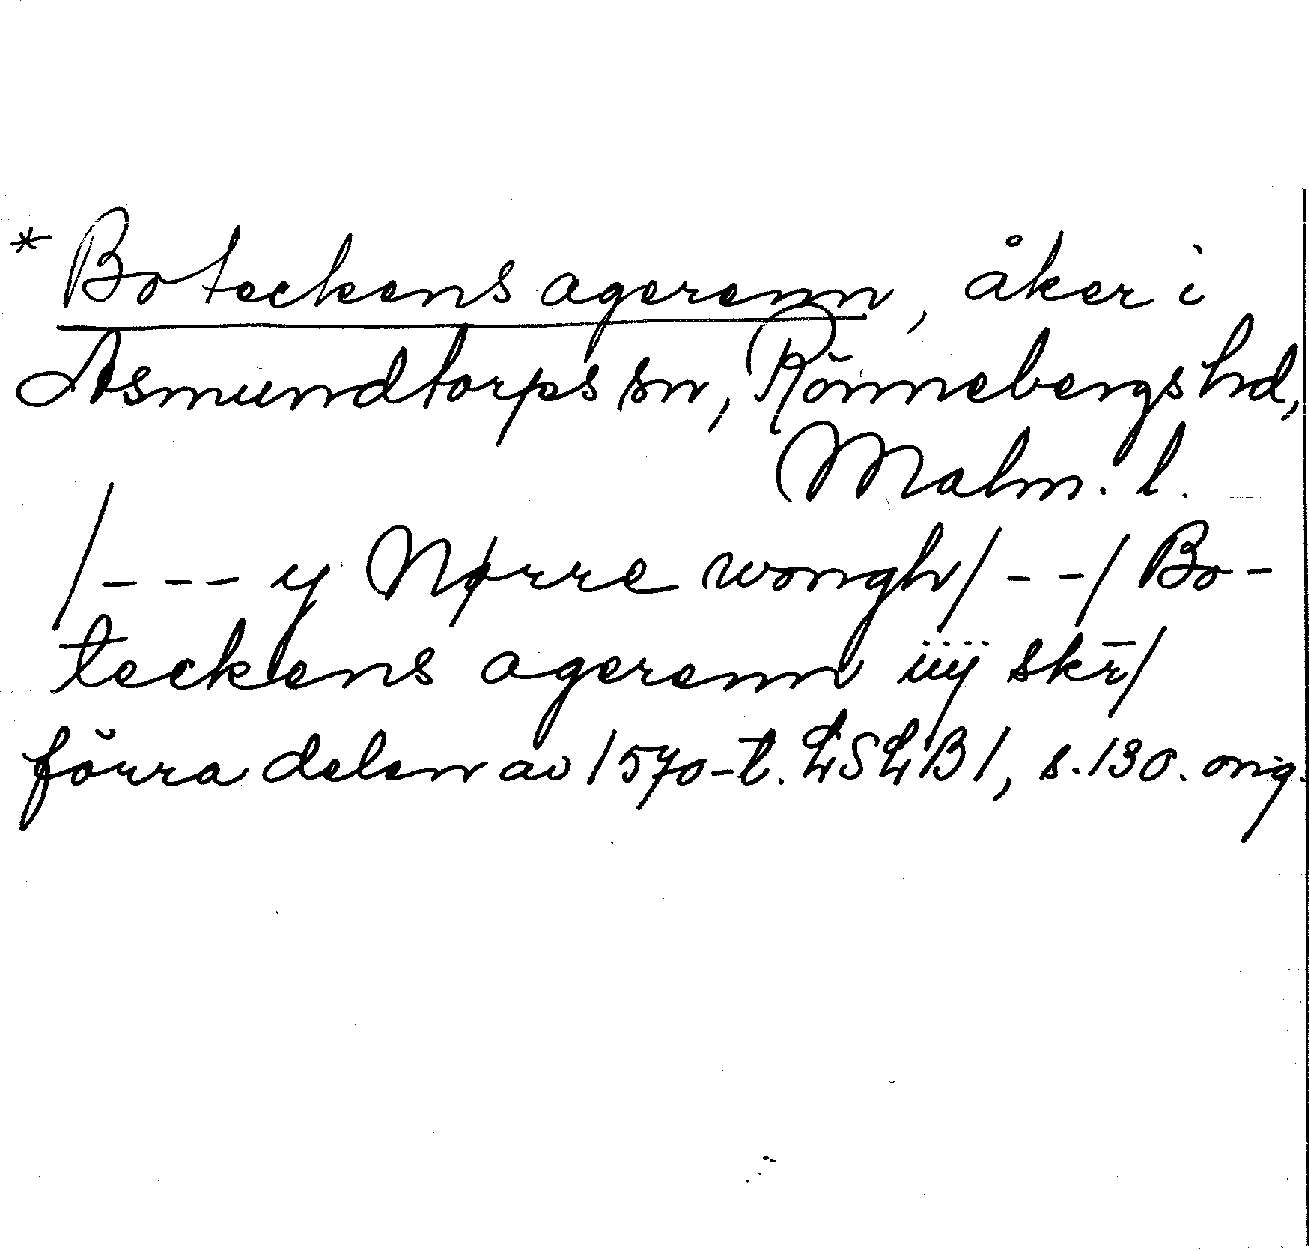 * Boteckens agerenn, åker i
Asmundtorps sn, Rönnebergs hd,
Malm. l.
/- - - y Nørre wongh/ - -/ Bo-
teckens agerenn iiij skr̄/
förra delen av 1570-t. LSLB1, s. 130. orig.